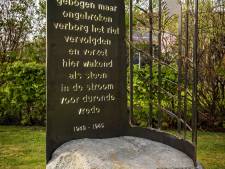 gebogen maar
ongebroken
verborg het riet
vervolgden
en verzet
hier wakend
als steen
in de stroom
voor durende
vrede
1940 - 1945